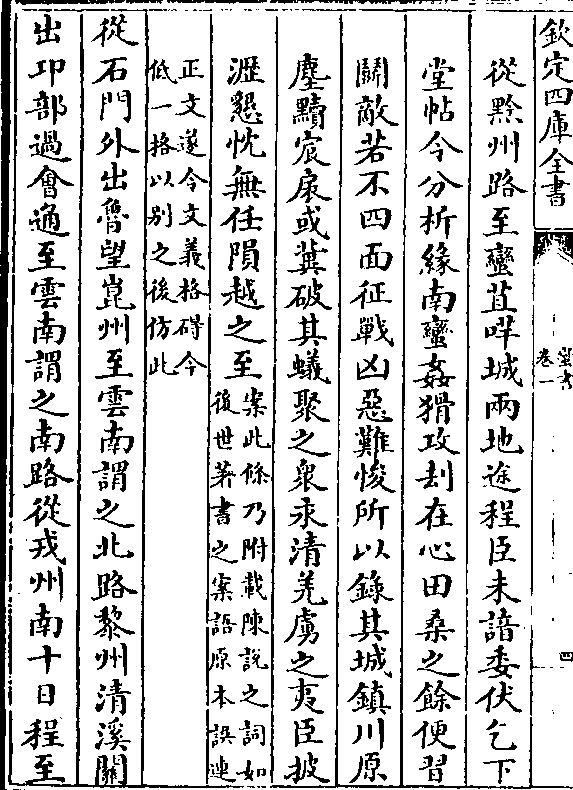 欽定四庫全書
蠻書
卷一
四
從黔州路至蠻苴哶城兩地途程臣未諳委伏乞下
堂帖令分析緣南蠻姦猾攻刦在心田桑之餘便習
鬭敵若不四面征戰凶惡難悛所以錄其城鎮川原
塵黷宸扆或冀破其蟻聚之衆永清羌虜之夷臣披
瀝懇忱無任隕越之至案此條乃附載陳說之詞如
後世著書之案語原本誤連
正文遂令文義格礙今
低一格以别之後仿此
從石門外出魯望崑州至雲南謂之北路黎州清溪關
出卭部過會通至雲南謂之南路從戎州南十日程至